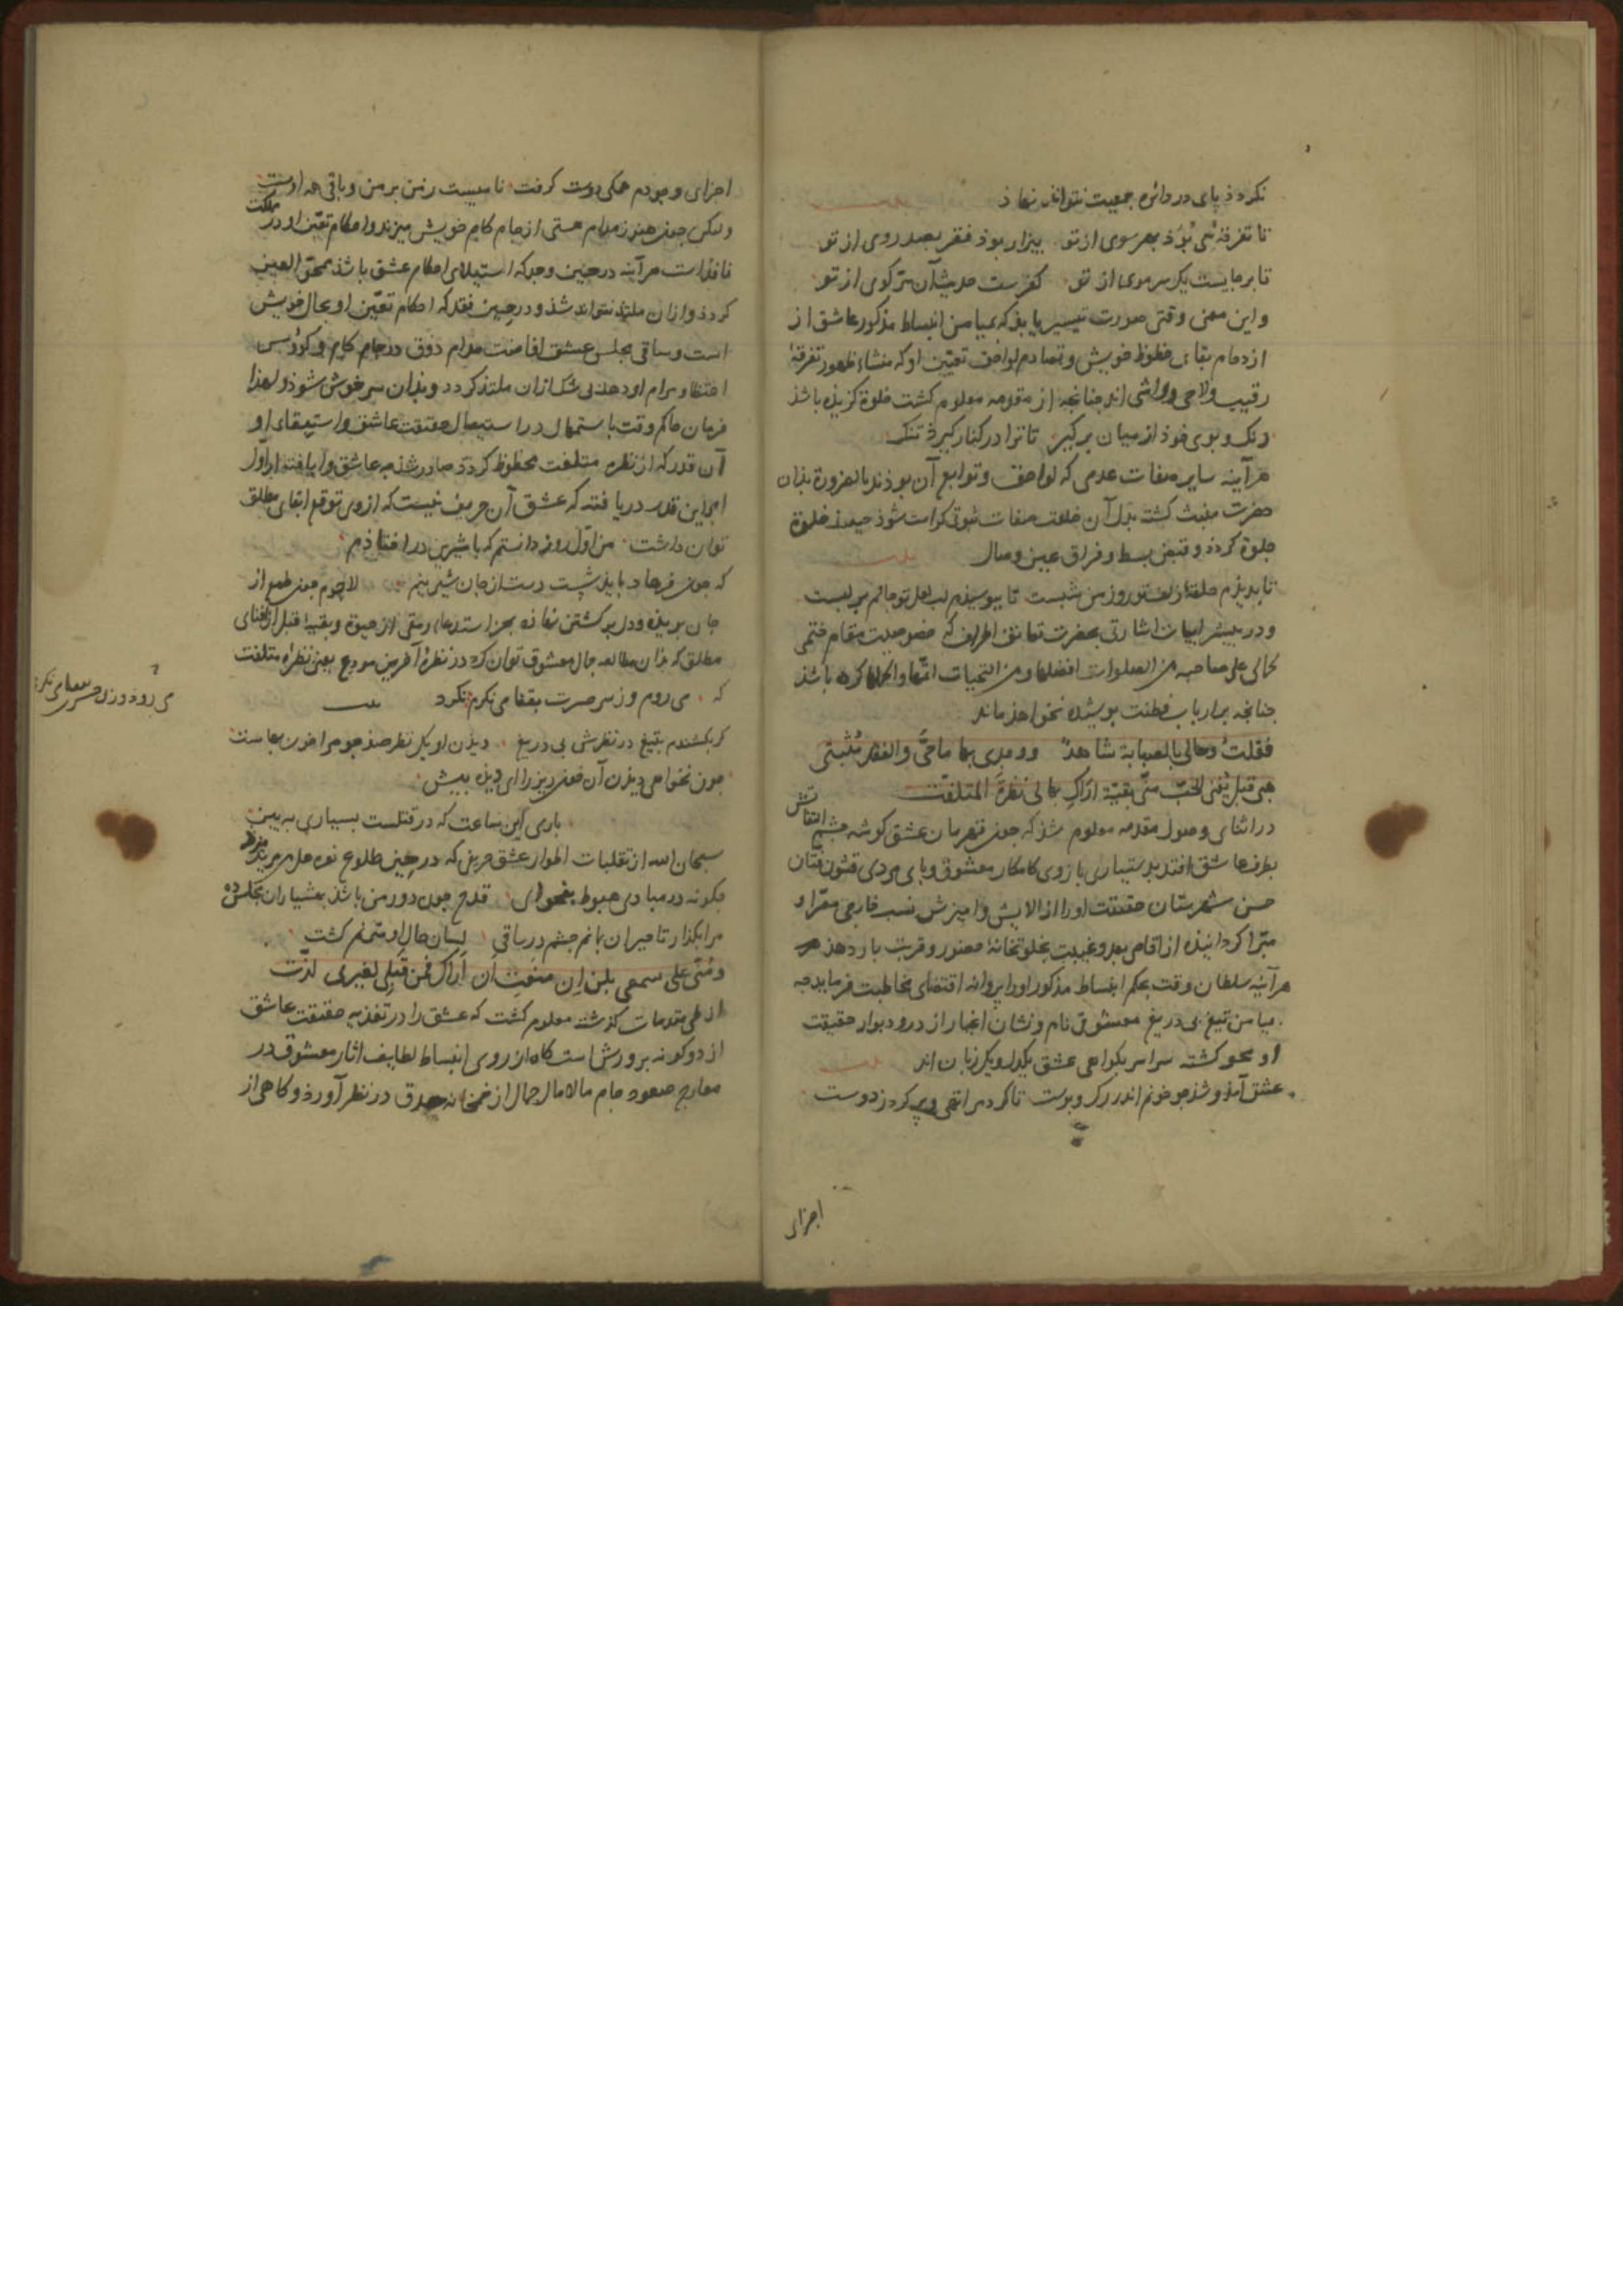 نکردد پای در دائره جمعیت نتواند نهاذ
تا تفرقهٔ می بُوَذ بهر سوی از تو بیزار بوذ فقر بصد روی از تو
تا بر جایست یک سر موی از تو کفرست حدیث آن سر کوی از تو
و این معنی وقتی صورت تیسیر یابذ که بمیامن انبساط مذکور عاشق از
ازدحام بقای حظوظ خویش و تصادم لواحق تعیّن او که منشاء ظهور تفرقهٔ
رقیب و لاحی و واشی اند چنانچه از مقدمه معلوم کشت خلوة کزیذه باشذ
رنک و بوی خوذ از میان برکیر تا ترا در کنار کیرذ تنک
هر آینه سایر صفات عدمی که لواحق و توابع آن بوذند بالضرورة بذان
حضرت مثبت کشته بدل آن خلعت صفات ثبوتی کرامت شوذ خلوة
جلوة کردذ و قبض بسط و فراق عین وصال
تا بدیذم حلقهٔ زلف تو روز من شبست تا ببوسیذم لب لعل تو جانم بر لبست
و درین ابیات اشارتی بحضرت تعانق اطراف که خصوصیت مقام ختمی
کمالی علی صاحبه من الصلوات افضلها و من التحیات اتمّها و اکملها کرده باشذ
چنانچه بر ارباب فطنت پوشیذه نخواهذ ماند
فقلتُ وحالی بالصبابة شاهدٌ ووجدی بها ماحیَّ والفقد مُثبتی
هبی قبل یُفنی الحبّ منّی بقیّة اراکِ بها لی نظرةَ المتلفّت
در اثنای وصول مقدمه معلوم شذ که چون قهرمان عشق کوشهٔ چشم التفاتش
بطرف عاشق افتد بدستیاری بازوی کامکار معشوق و پای مردی فنون فتان
حسن شهرستان حقیقت او را از آلایش و آمیزش نسب خارجی معرّا و
مبرّا کردانیذه از اقاصی بعد و غیبت بخلوتخانهٔ حضور و قربت بار دهذ
هر آینه سلطان وقت بحکم انبساط مذکور او را پروانهٔ اقتضای مخاطبت فرماید چه
میامن تیغ بی دریغ معشوق نام و نشان اغیار از در و دیوار حقیقت
او محو کشته سراسر بکواهی عشق یکدل و یک زبان اند
عشق آمذ و شذ چو خونم اندر رک و پوست تا کرد مرا تهی و پر کرد ز دوست
اجزای
اجزای وجودم همکی دوست کرفت نامیست ز من بر من و باقی همه اوست
ولیکن چون هنوز مدام هستی از جام کام خویش میزند و احکام تعیّن او در مملکت
نافذ است هر آینه در حین وجد که استیلای احکام عشق باشذ محق العین
کردد و از آن ملتذ نتواند شذ و در حین فقد که احکام تعیّن او بحال خویش
است و ساقی مجلس عشق افاضت مدام ذوق در جام کام و کؤوس
احتظا و مرام او دهذ بی شک از آن ملتذ کردد و بذان سر خوش شوذ و لهذا
فرمان حاکم وقت باستمهال در استیصال حقیقت عاشق و استبقای او
آن قدر که از نظره متلفت محظوظ کردد صادر شذ چه عاشق
این قدر دریافته که عشق آن حریف نیست که از وی توقع ابقای مطلق
توان داشت من اوّل روز دانستم که با شیرین در افتاذم
که چون فرهاد بایذ شست دست از جان شیرینم لاجرم چون طمع از
جان بریذه و دل بر کشتن نهاذه بجز استدعاء رمقی از حیوة و بقیه قبل از فنای
مطلق که بذان مطالعه جمال معشوق توان کرد در نظرهٔ آخرین مودع یعنی نظره متلفت
که می روم و ز سر حسرت بقفا می نکرم نکرد بیت
می رود و ز سر حسرت بقفا می نکرد
کر بکشندم بتیغ در نظرش بی دریغ دیذن او یک نظر صد چو مرا خون بهاست
چون نخواهی دیذن آن خونریز را ای دیذه بیش
باری این ساعت که در قتلست بسیاری ببین
سبحان الله از تقلبات اطوار عشق حریفی که در حین طلوع نعره هل من مزید میزد
چکونه در مبادی هبوط بفحوای قدح چون دور من باشذ بهشیاران مجلس ده
مرا بکذار تا حیران بمانم چشم در ساقی لسان حال او مترنم کشت
ومُنّی علی سمعی بلن ان منعتِ أن أراکِ فمن قبلی لغیری لذّت
از طی مقدمات کذشته معلوم کشت که عشق را در تغذیه حقیقت عاشق
از دو کونه پرورش است کاه از روی انبساط لطایف آثار معشوق در
معارج صعود جام مالامال جمال از خمخانه صدق در نظر آورد و کاهی از